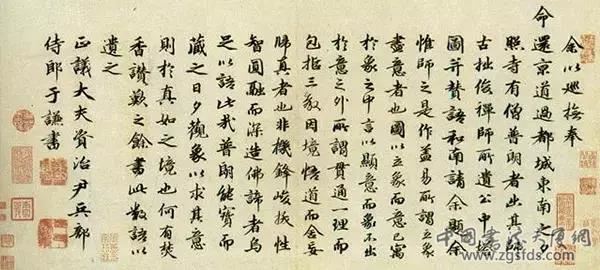 余以巡撫奉
命還京道過都城東南夕
照寺有僧普朗者出其師
古拙俊禪師所遺公中塔
圖并贊語和南請余題余
惟師之是作蓋易所謂立象
盡意者也圖以立象而意已寓
於象之中言以顯意而象不出
於意之外所謂貫通一理而
包括三教因境悟道而舍妄
歸真者也非機鋒峻拔性
智圓融而深造佛諦者烏
足以語此哉普朗能寶而
藏之日夕觀象以求其意
則於真如之境也何有焚
香讚歎之餘書此數語以
遺之
正議大夫資治尹兵部
侍郎于謙書
www.zgsfds.com